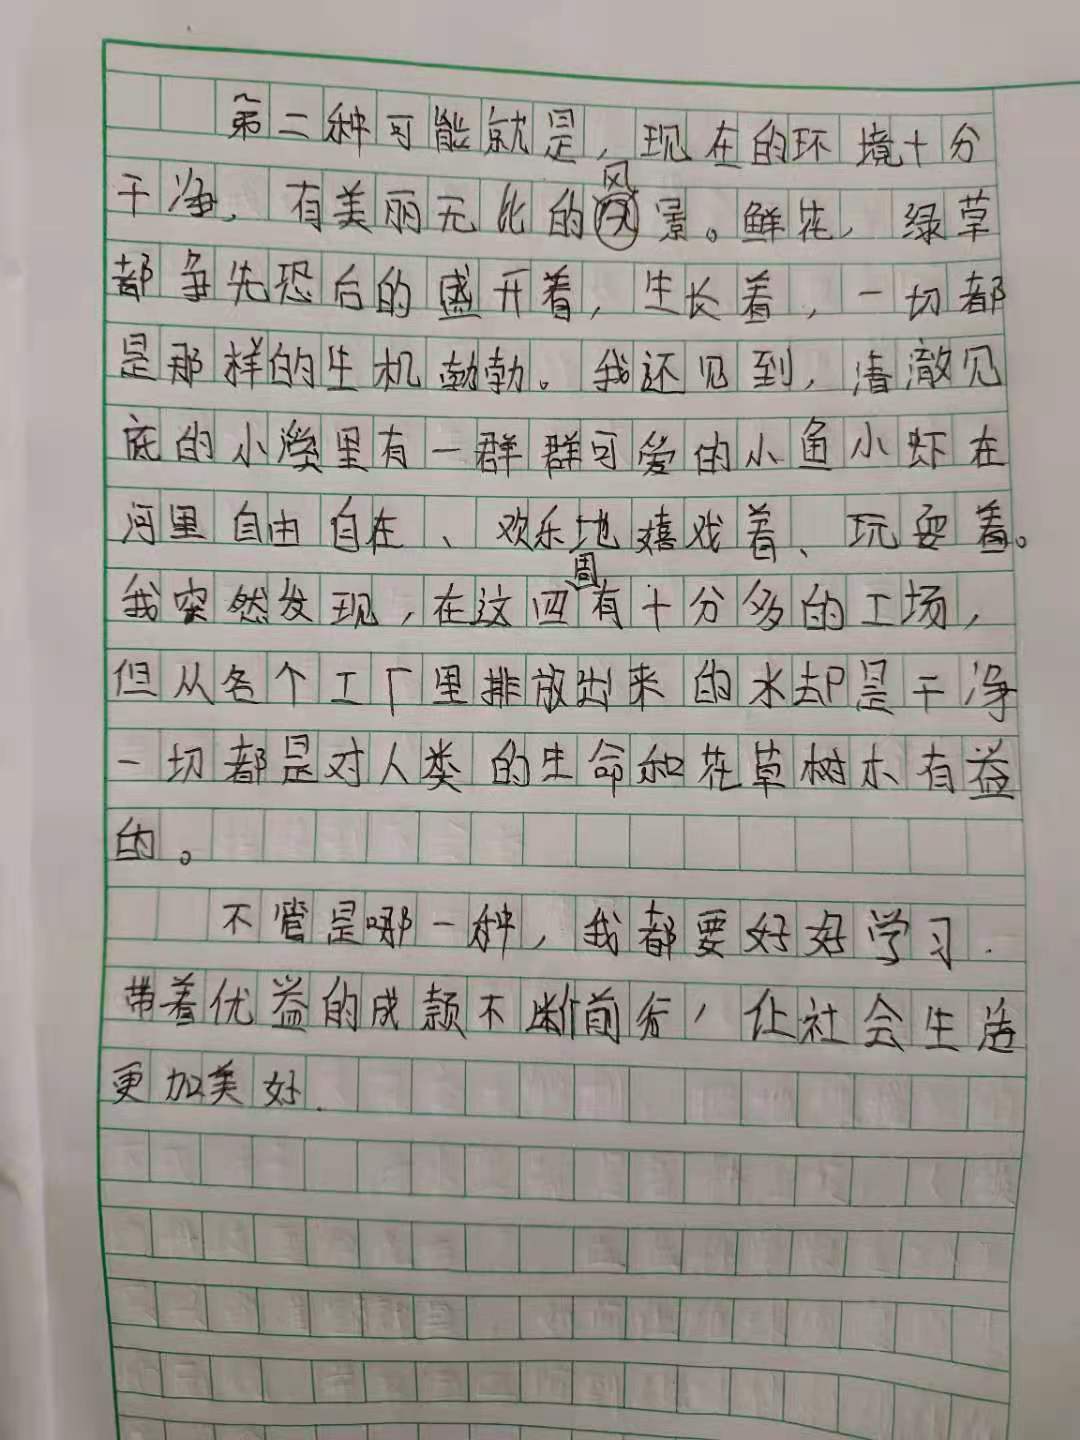 第二种可能就是，现在的环境十分
干净，有美丽无比的风景。鲜花，绿草
都争先恐后的盛开着，生长着，一切都
是那样的生机勃勃。我还见到，清澈见
底的小溪里有一群群可爱的小鱼小虾在
河里自由自在、欢乐地嬉戏着、玩耍着。
我突然发现，在这四周有十分多的工场，
但从各个工厂里排放出来的水却是干净
一切都是对人类的生命和花草树木有益
的。
不管是哪一种，我都要好好学习.
带着优益的成颖不断前行，让社会生活
更加美好.